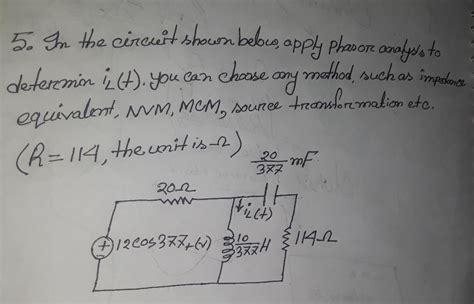 5. In the circuit shown below, apply phasor analysis to
determin iL(t). you can choose any method, such as impedance
equivalent, NVM, MCM, source transformation etc.
(R = 114, the unit is Ω)
20/377 mF
20Ω
iL(t)
12cos377t (v)
10/377 H
114Ω